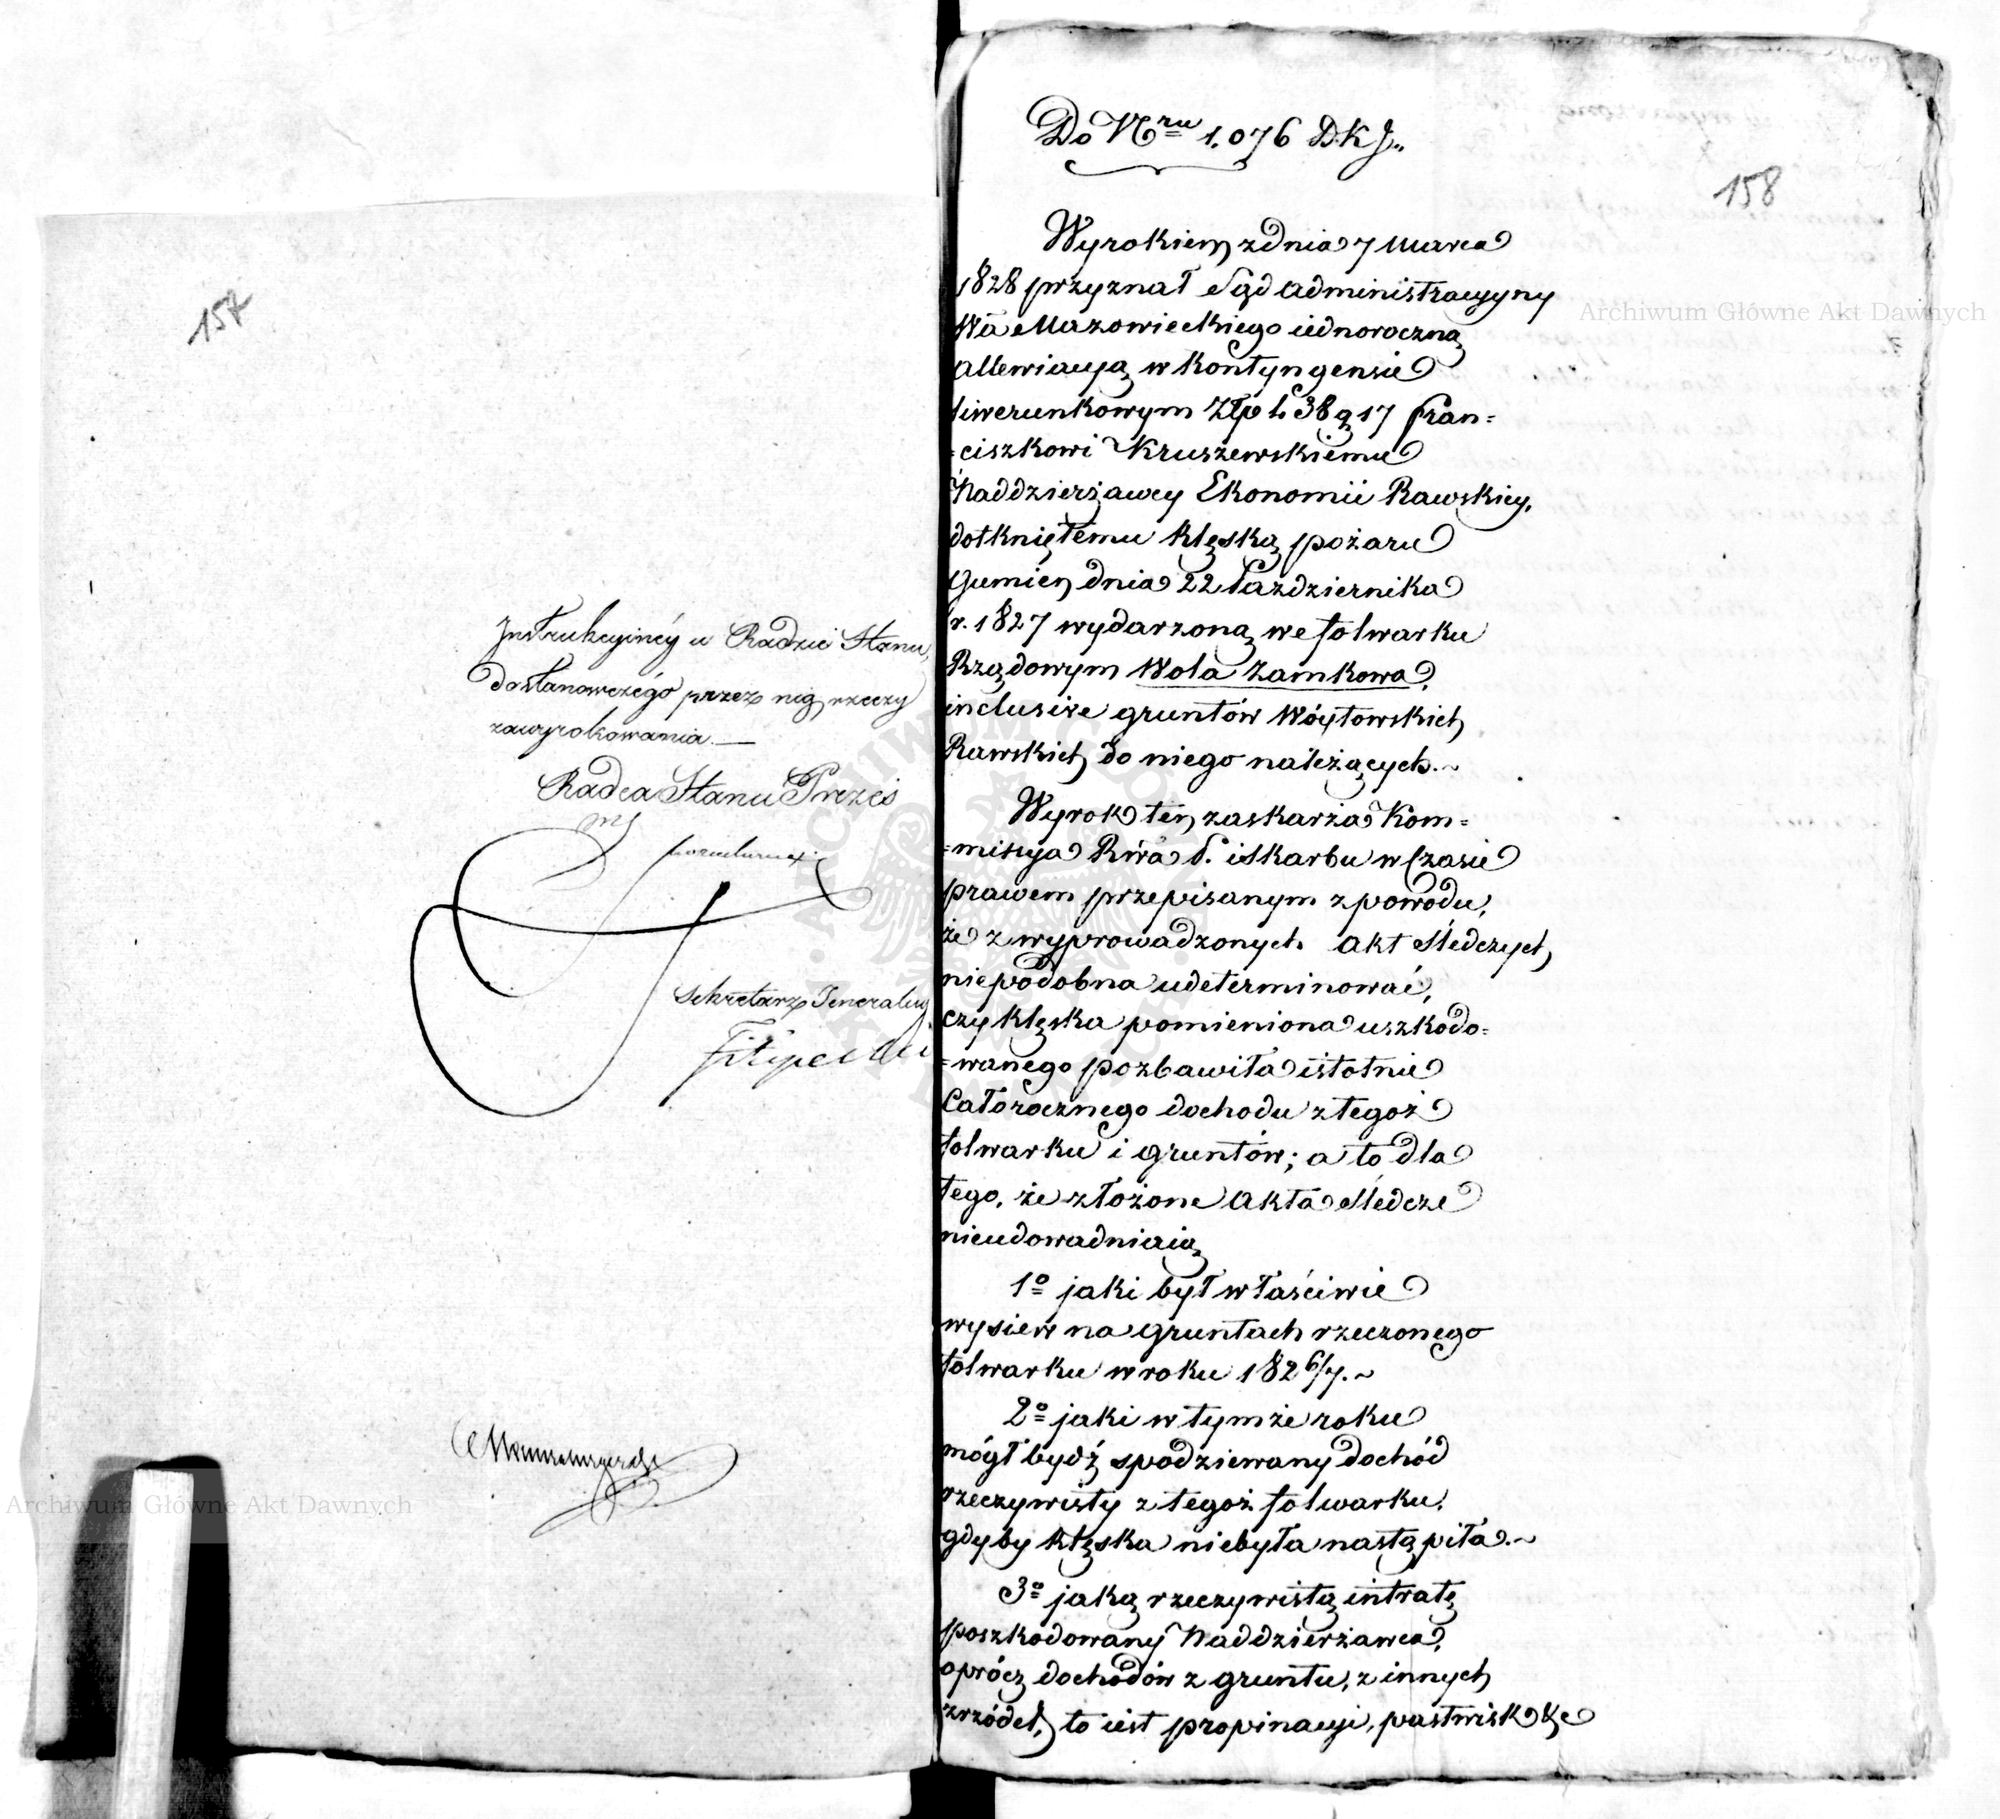 157
Instrukcyinéy w Radzie Stanu,
dostanowczégo przez nią rzeczy
zawyrokowania.—
Radca Stanu Prezes
Sekretarz Jeneralny
Filipecki
Archiwum Główne Akt Dawnych
Do Nru 1,076 D.K.J.
158
Wyrokiem z dnia 7 Marca
1828 przyznał Sąd administracyjny
Wa Mazowieckiego iednoroczną
allewiacyą w kontyngensie
liwerunkowym Złp 438 g 17 Fran=
=ciszkowi Kruszewskiemu
Naddzierżawcy Ekonomii Rawskiey,
dotkniętemu klęską pożaru
Gumien dnia 22 Października
r. 1827 wydarzoną we folwarku
Rządowym Wola Zamkowa,
inclusive gruntów Wóytowskich
Rawskich do niego należących.~
Wyrok ten zaskarża Kom=
=missya Rwa P. i Skarbu w Czasie
prawem przepisanym z powodu,
że z wyprowadzonych akt Śledczych
niepodobna udeterminować,
czy klęska pomieniona uszkodo=
=wanego pozbawiła istotnie
Całorocznego dochodu z tegoż
folwarku i gruntów; a to dla
tego, że złożone akta Śledcze
nieudowadniaią
1º jaki był właściwie
wysiew na gruntach rzeczonego
folwarku w roku 1826/7.~
2º jaki w tymże roku
mógł bydź spodziewany dochód
rzeczywisty z tegoż folwarku,
gdyby klęska niebyła nastąpiła.~
3º jaką rzeczywistą intratę
poszkodowany Naddzierżawca,
oprócz dochodów z gruntu, z innych
zrzódeł, to iest propinacyi, pastwisk &c
Archiwum Główne Akt Dawnych